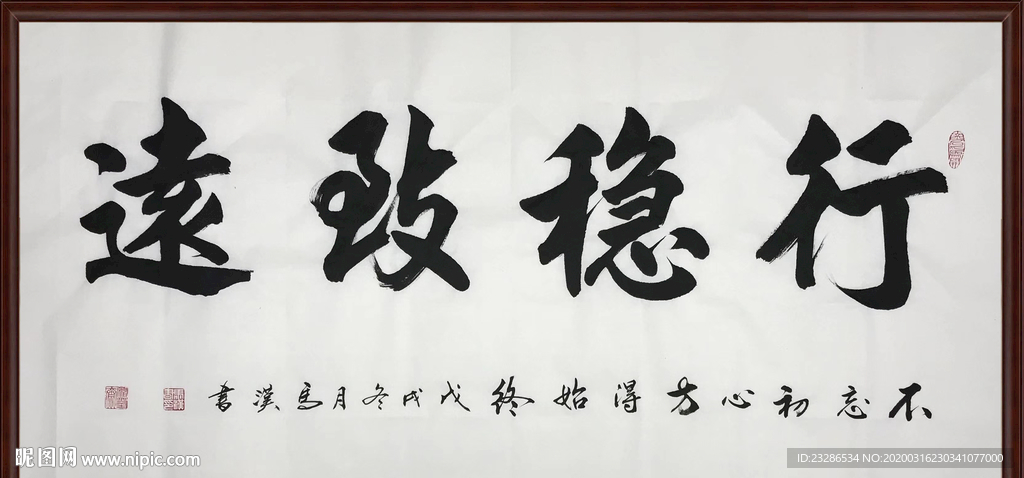 行稳致遠
不忘初心方得始终戊戌冬月马漢書
昵图网 www.nipic.com
ID:23286534 NO:20200316230341077000